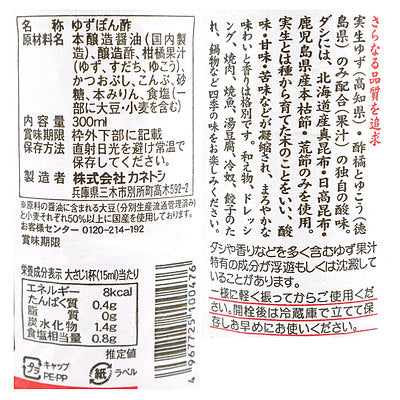 名称 ゆずぽん酢
原材料名 本醸造醤油(国内製
造)、醸造酢、柑橘果汁
(ゆず、すだち、ゆこう)、
かつおぶし、こんぶ、砂
糖、本みりん、食塩(一
部に大豆・小麦を含む)
内容量 300ml
賞味期限 枠外下部に記載
保存方法 直射日光を避けて常温
で保存してください。
製造者 株式会社カネトシ
兵庫県三木市別所町高木592-2
※原料の醤油に含まれる大豆(分別生産流通管理済み)
と小麦それぞれ50%以上に国産を使用しております。
お客様センター 0120-214-192
賞味期限
栄養成分表示 大さじ1杯(15ml)当たり
エネルギー 8kcal
たんぱく質 0.4g
脂質 0g
炭水化物 1.4g
食塩相当量 0.8g
推定値
プラ
キャップ
PE・PP
紙
ラベル
4967725100476
さらなる品質を追求
実生ゆず(高知県)・酢橘とゆこう(徳
島県)のみ配合(果汁)の独自の酸味。
ダシには、北海道産真昆布・日高昆布・
鹿児島県産本枯節・荒節のみを使用。
実生とは種から育てた木のことをいい、酸
味・甘味・苦味などが凝縮され、まろやかな
味わいと香りは格別です。和え物、ドレッシ
ング、焼肉、焼魚、湯豆腐、冷奴、餃子のた
れ、鍋物など四季の味をお楽しみください。
ダシや香りなどを多く含むゆず果汁
特有の成分が浮遊もしくは沈澱して
いることがあります。
一様に軽く振ってからご使用くだ
さい。開栓後は冷蔵庫で立てて保
存しお早めにお使いください。